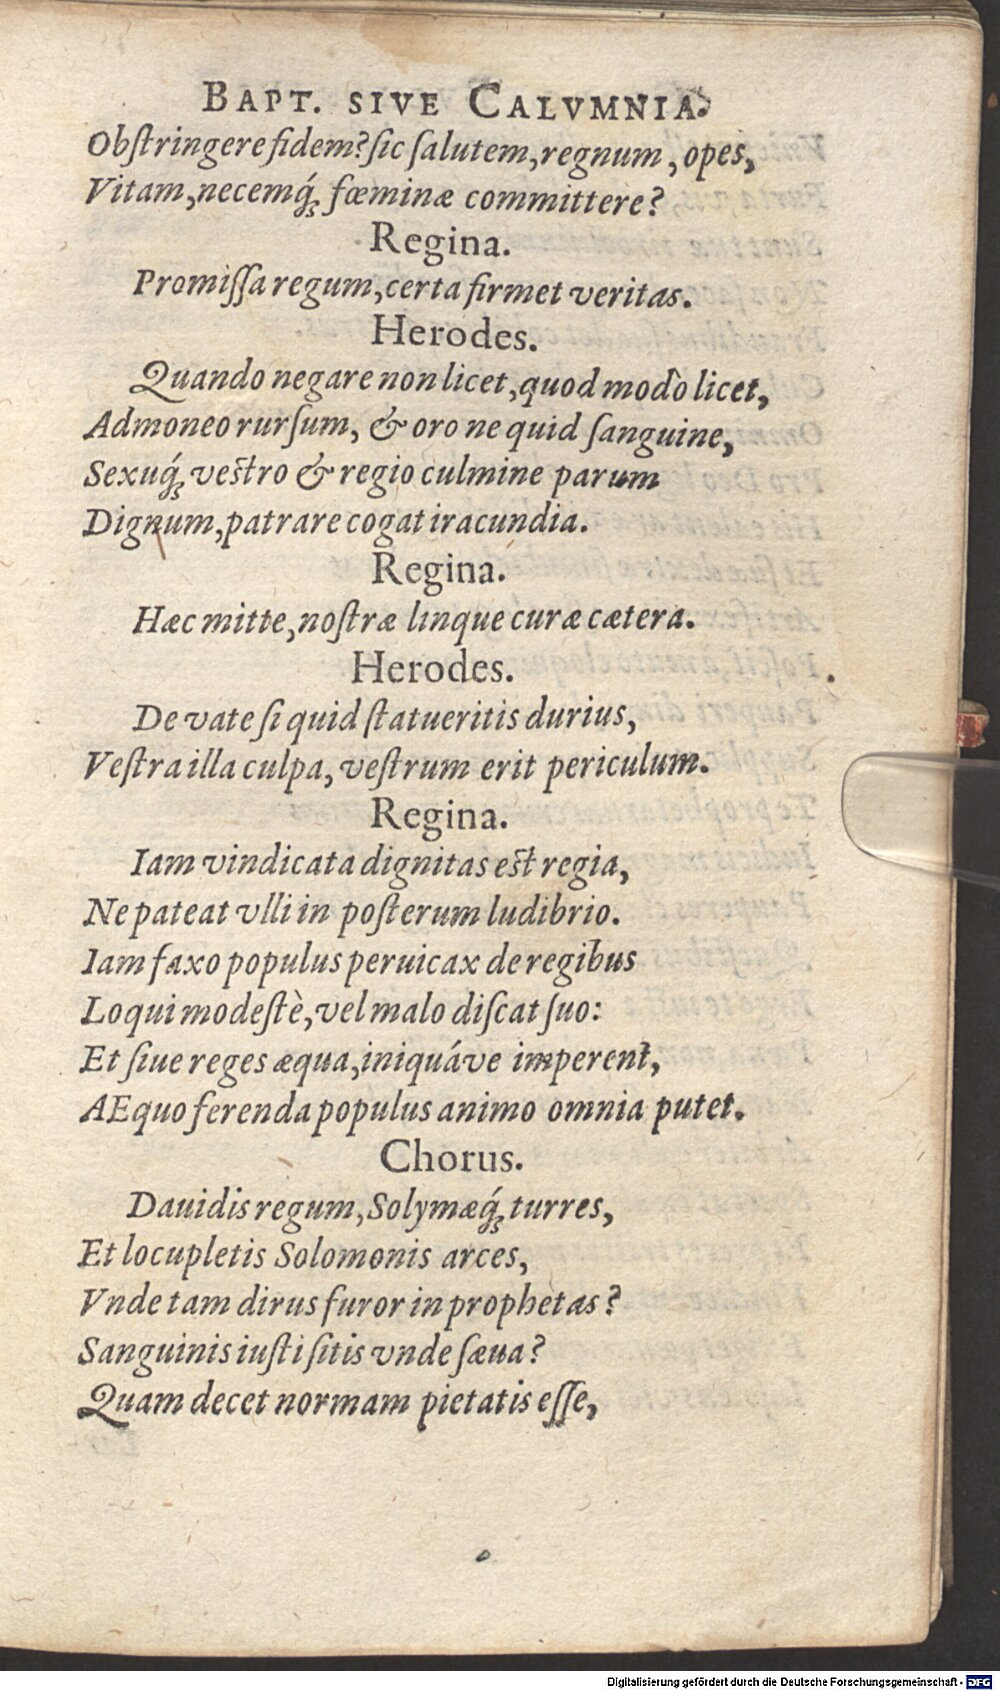 BAPT. SIVE CALVMNIA.
Obſtringere fidem? ſic ſalutem, regnum, opes,
Vitam, necemq́ꝫ fœminæ committere?
Regina.
Promiſſa regum, certa firmet veritas.
Herodes.
Quando negare non licet, quod modò licet,
Admoneo rurſum, & oro ne quid ſanguine,
Sexuq́ꝫ veſtro & regio culmine parum
Dignum, patrare cogat iracundia.
Regina.
Hæc mitte, noſtræ linque curæ cætera.
Herodes.
De vate ſi quid ſtatueritis durius,
Veſtra illa culpa, veſtrum erit periculum.
Regina.
Iam vindicata dignitas eſt regia,
Ne pateat vlli in poſterum ludibrio.
Iam faxo populus peruicax de regibus
Loqui modeſtè, vel malo diſcat ſuo:
Et ſiue reges æqua, iniquáve imperent,
AEquo ferenda populus animo omnia putet.
Chorus.
Dauidis regum, Solymæq́ꝫ turres,
Et locupletis Solomonis arces,
Vnde tam dirus furor in prophetas?
Sanguinis iuſti ſitis vnde ſæua?
Quam decet normam pietatis eſſe,
Digitalisierung gefördert durch die Deutsche Forschungsgemeinschaft - DFG